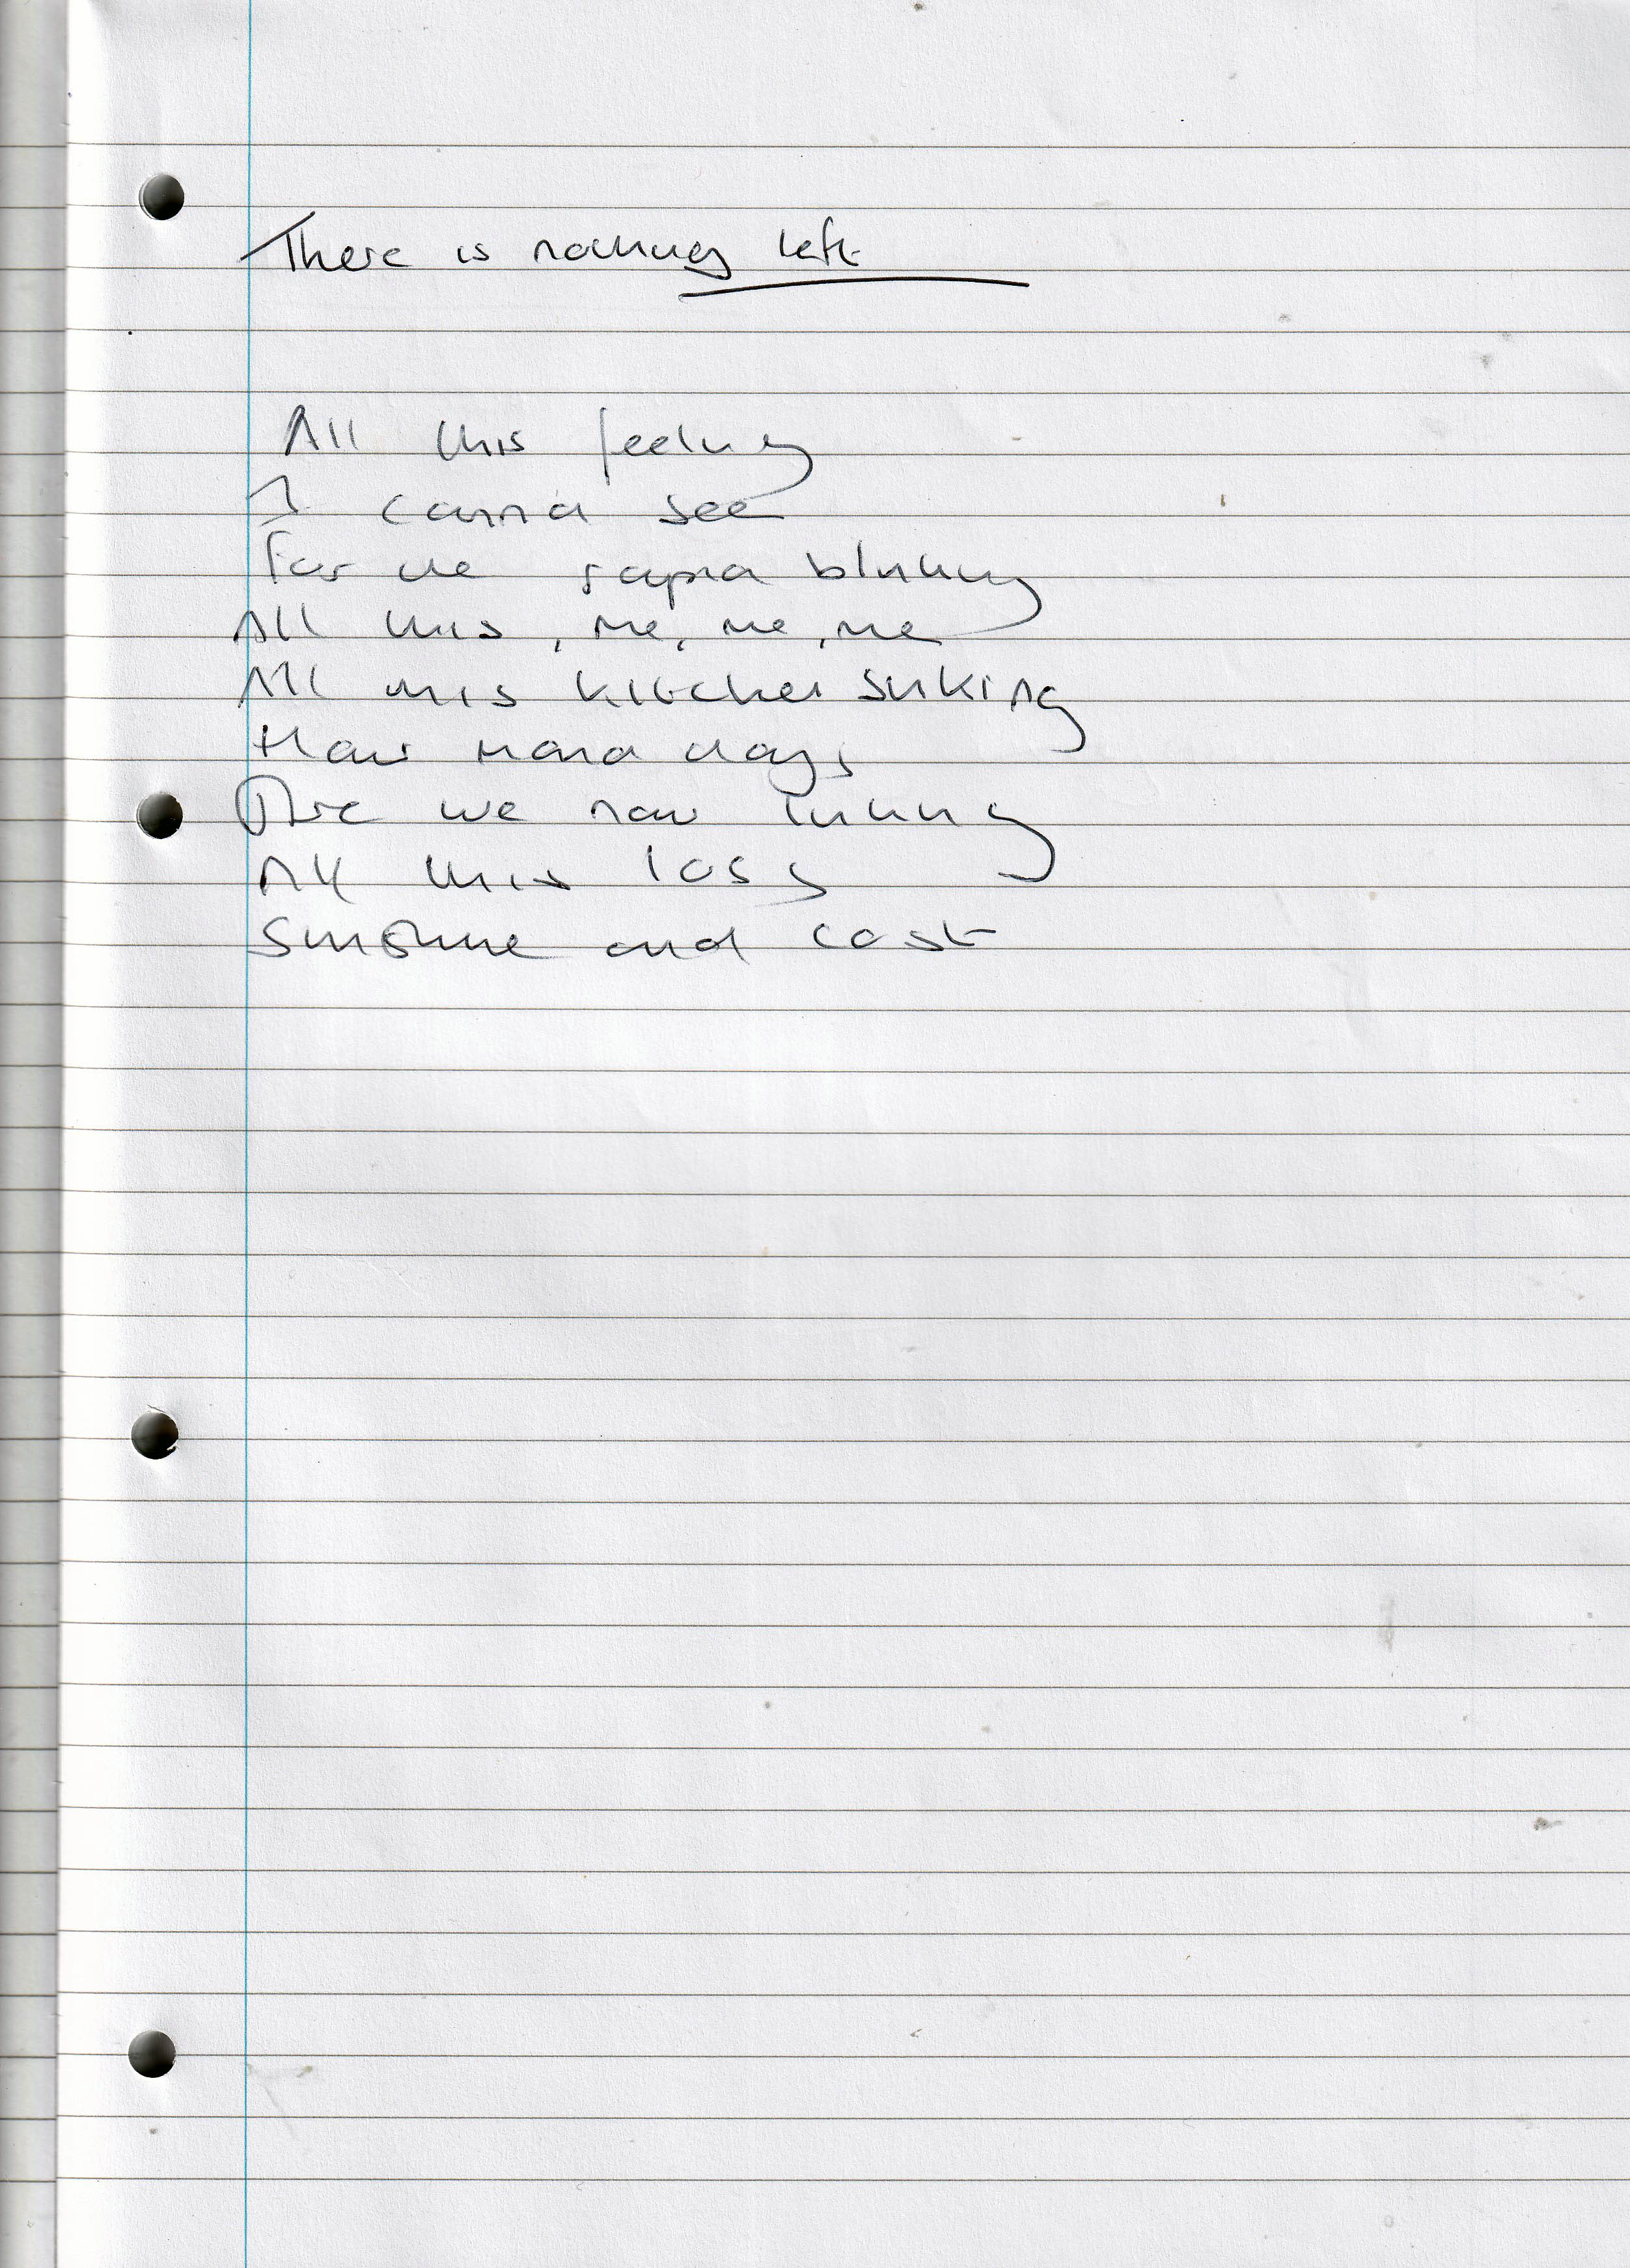 There is nothing left
All this feeling
I canna see
For the rapid blinking
All this, me, me, me
All this kitchen sinking
How many days
Are we now
All this loss
Sunshine and cost